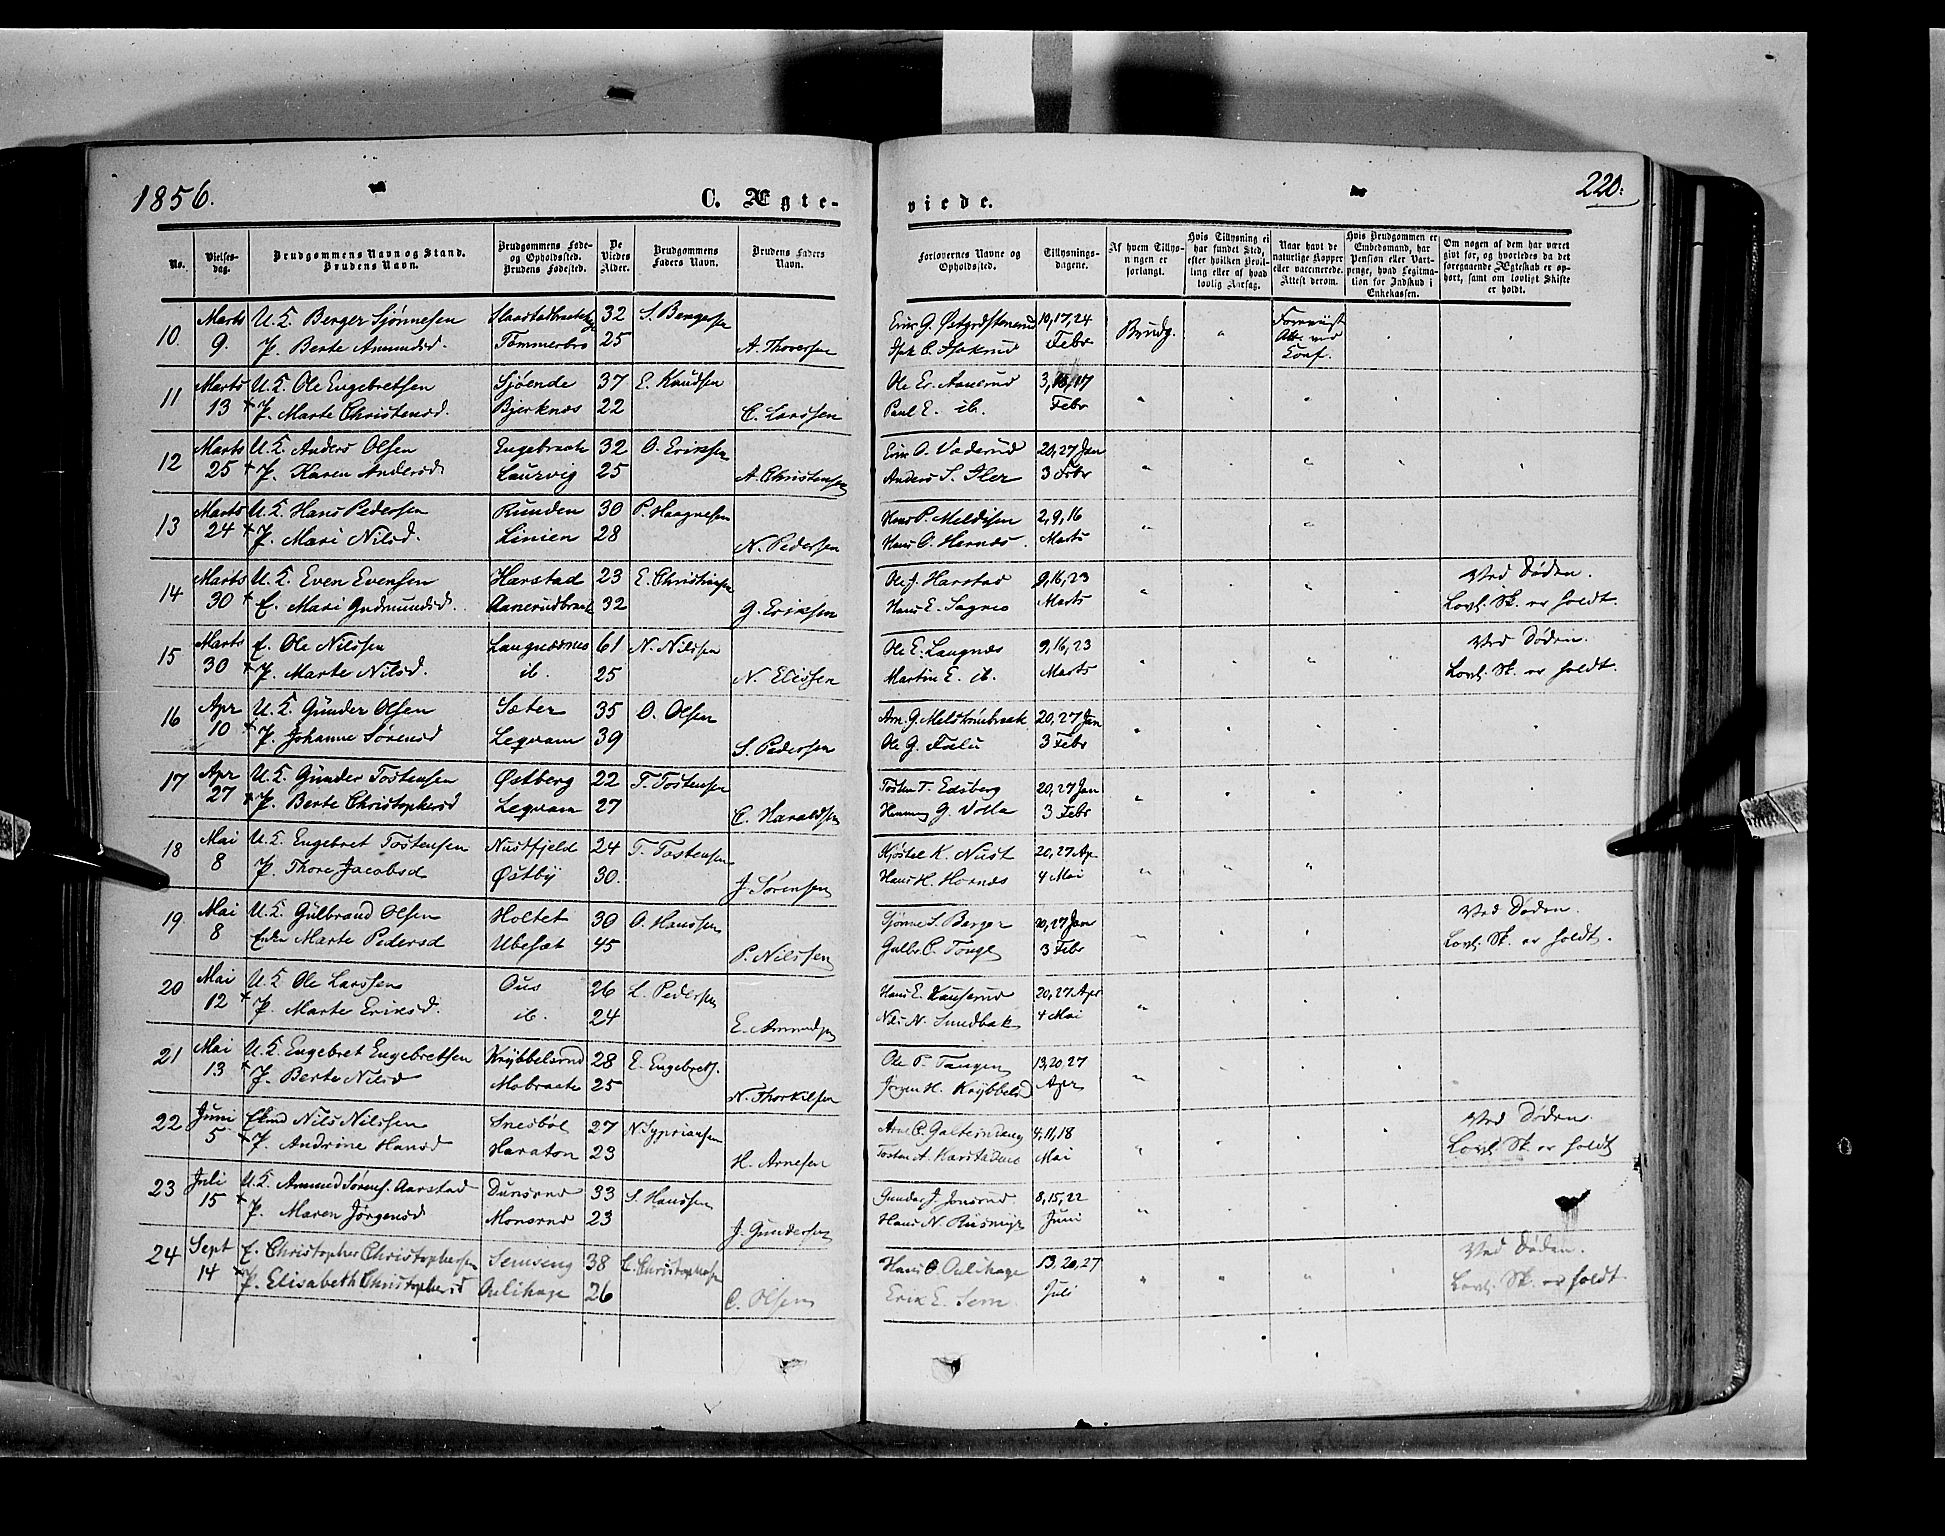 1856.
C. Ægte-
viede.
220.
No.
Vielses-
dag.
Brudgommens Navn og Stand.
Brudens Navn.
Brudgommens Føde-
og Opholdssted.
Brudens Fødested.
De
Viedes
Alder.
Brudgommens
Faders Navn.
Brudens Faders
Navn.
Forlovernes Navne og
Opholdssted.
Tillysnings-
dagene.
Af hvem Tillys-
ningen er
forlangt.
Hvis Tillysning ei
har fundet Sted,
efter hvilken Bevil-
ling eller af hvad
lovlig Aarsag.
Naar havt de
naturlige Kopper
eller vaccinerede.
Attest derom.
Hvis Brudgommen er
Embedsmand, har
Pension eller Vart-
penge, hvad Legitima-
tion for Indskud i
Enkekassen.
Om nogen af dem har været
givt før, og hvorledes da det
foregaaende Ægteskab er op-
hørt, samt om lovligt Skifte
er holdt.
10 Marts U.K. Berger Sjønnesen 32 S. Bergersen 10, 17, 24
9. P. Berte Amundsd. Tømmerbro 25 A. Thoversen Febr Brudg. Conf.
11 Marts U.K. Ole Engebretsen Sjøende 37 E. Knudsen Ole Er. Aanerud
13 P. Marte Christensd. Bjerknæs 22 C. Larssen Paul E. ib. Febr
12 Marts U.K. Anders Olsen Engebraate 32 O. Eriksen Erik O. Vaderud 20, 27 Jan
25 P. Karen Andersd Laurvig 25 A. Christensen Anders S. Iler 3 Febr
13 Marts U.K. Hans Pedersen Runden 30 P. Haagnesen Hans P. Meldisen 2, 9, 16
24 P. Mari Nilsd. Linien 28 N. Pedersen Hans O. Hernæs Marts
14 Marts U.K. Even Evensen Harstad 23 E. Christiansen Ole J. Harstad 9, 16, 23 Ved Døden.
30 E. Mari Gudmundsd. Aanerudbraate 32 G. Eriksen Hans E. Sagnes Marts Lovl. Sk. er holdt.
15 Marts E. Ole Nilssen Langnæsnes 61 N. Nilssen Ole E. Langnæs 9, 16, 23 Ved Døden.
30 P. Marte Nilsd. ib. 25 N. Elissen Martin E. ib. Marts Lovl. Sk. er holdt.
16 Apr U.K. Gunder Olsen Sæter 35 O. Olsen 20, 27 Jan
10 P. Johanne Sørensd Leqvam 39 S. Pedersen Ole G. Fælu 3 Febr
17 Apr U.K. Gunder Tostensen Østberg 22 T. Tostensen Tosten T. Edsberg 20, 27 Jan
27 P. Berte Christophersd Leqvam 27 C. Haraldsen Hemming G. Volla 3 Febr
18 Mai U.K. Engebret Tostensen Nustfjeld 24 T. Tostensen Kjøstel K. Nust 20, 27 Ap
8 P. Thore Jacobsd Østby 30. J. Sørensen Hans H. Hornæs 4 Mai
19 Mai U.K. Gulbrand Olsen Holtet 30 O. Hanssen Sjønne S. Berger 20, 27 Jan Ved Døden.
8 Enke Marte Pedersd Ubesæt 45 P. Nilssen Gulbr. C. Tonge 3 Febr Lovl. Sk. er holdt.
20 Mai U.K. Ole Larssen Ous 26 L. Pedersen Hans E. Kauserud 20, 27 Apr
12 P. Marte Eriksd. ib. 24 E. Amundsen Nils N. Sundbak 4 Mai
21 Mai U.K. Engebret Engebretsen Krybbelsrud 28 E. Engebrets. Ole P. Tangen 13, 20, 27
13 P. Berte Nilsd Mobraate 25 N. Thorkilsen Jørgen H. Krybbelsd Apr
22 Juni Ekmd Nils Nilssen Snesbøl 27 N. Sypriansen 4, 11, 18 Ved Døden.
5 P. Andrine Hansd Haraton 23 H. Arnesen Mai Lovl. Sk. er holdt
23 Juli U.K. Amund Sørens. Aarstad Dunsrud 33 S. Hanssen Gunder J. Jonsrud 8, 15, 22
15 P. Maren Jørgensd Monsrud 23 J. Gundersen Hans N. Riismyr Juni
24 Sept E. Christopher Christophersen Semseng 38 C. Christophersen Hans O. Oulihage 13, 20, 27 Ved Døden.
14 P. Elisabeth Christophersd Oulihage 26 C. Olsen Erik E. Sem. Juli Lovl. Sk. er holdt